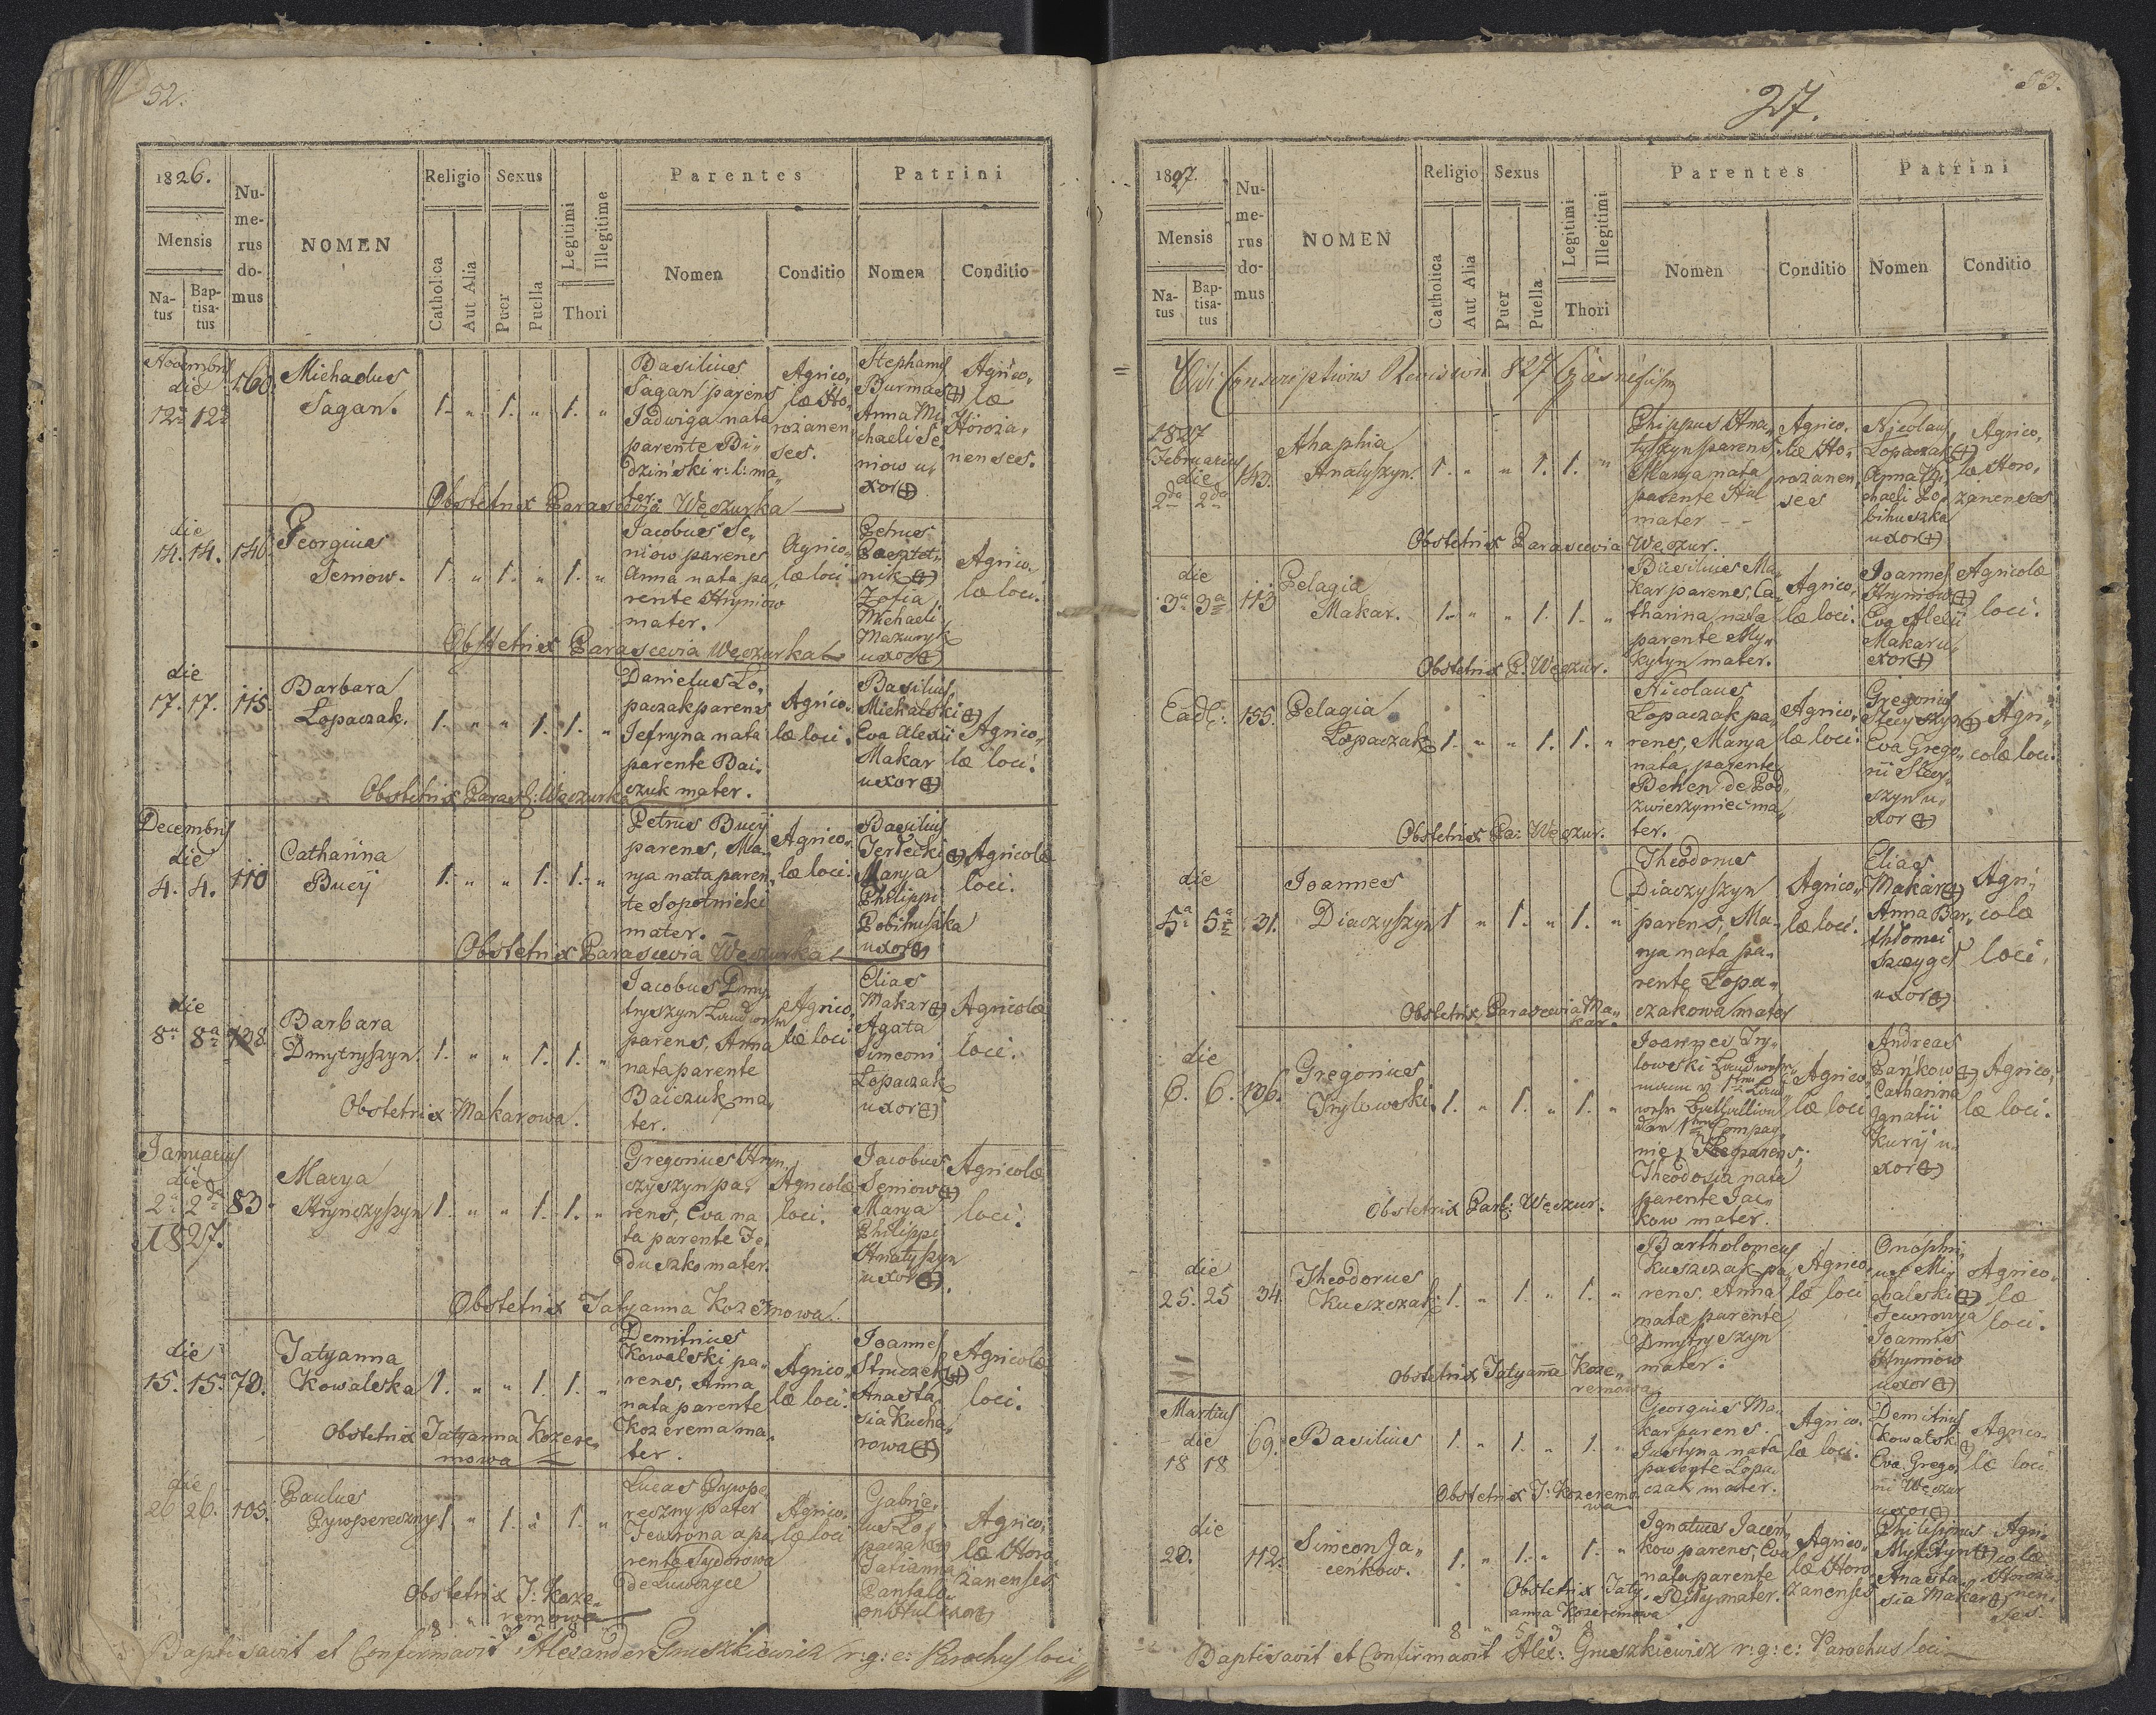 52.
1826.
Mensis
Na-
tus
Bap-
tisa-
tus
Nu-
me-
rus
do-
mus
NOMEN
Religio
Catholica
Aut Alia
Sexus
Puer
Puella
Legitimi
Illegitime
Thori
Parentes
Nomen
Conditio
Patrini
Nomen
Conditio
Novembris
die
12a 12a
160.
Michaelus
Sagan.
1. " 1. " 1. "
Basilius
Sagan parens
Jadwiga nata
parente Bi„
dziński r: l: ma„
ter.
Agrico„
læ Ho„
rożanen„
ses.
Stephanus
Burmas
Anna Mi„
chaeli Se„
niow u„
xor
Agrico„
læ
Horoża„
nenses.
Obstetrix Parascevia Węczurka
die
14. 14.
146.
Georgius
Seniow.
1. " 1. " 1. "
Jacobus Se„
niow parens
Anna nata pa„
rente Hryniow
mater.
Agrico„
læ loci
Petrus
nik
Zofia
Michaeli
Mazuryk
uxor
Agrico„
læ loci.
Obstetrix Parascevia Węczurka
die
17. 17.
115.
Barbara
Łopaczak.
1. " " 1. 1. "
Danielus Ło„
paczak parens
Jefryna nata
parente Bai„
czuk mater.
Agrico„
læ loci.
Basilius
Michalski
Eva Alexii
Makar
uxor
Agrico„
læ loci.
Obstetrix Parasc: Węczurka
Decembris
die
4. 4.
110
Catharina
Bucij
1. " " 1. 1. "
Petrus Bucij
parens, Ma„
rya nata paren„
te Sopotnicki
mater.
Agrico„
læ loci.
Basilius
Terlecki
Marya
Philippi
Pobihuszka
uxor
Agricolæ
loci.
Obstetrix Parascevia Węczurka
die
8a 8a
138.
Barbara
Dmytryszyn.
1. " " 1. 1. "
Jacobus Dmy„
tryszyn Landwehr
parens, Anna
nata parente
Baiczuk ma„
ter.
Agrico„
læ loci
Elias
Makar
Agata
Simeoni
Łopaczak
uxor
Agricolæ
loci.
Obstetrix Makarowa.
Januarius
die
2a 2da
1827.
83.
Marya
Hrynczyszyn
1. " " 1. 1. "
Gregorius Hryn„
czyszyn pa„
rens, Eva na
ta parente Fe„
duszko mater.
Agricolæ
loci.
Jacobus
Seniow
Marya
Philippi
Hnatyszyn
uxor
Agricolæ
loci.
Obstetrix Tatyanna Kozeremowa.
die
15. 15.
78.
Tatyanna
Kowalska
1. " " 1. 1. "
Demitrius
Kowalski pa„
rens, Anna
nata parente
Kozerema ma„
ter.
Agrico„
læ loci.
Joannes
Struczek
Anasta„
sia Kucha„
rowa
Agricolæ
loci.
Obstetrix Tatyanna Kozere„
mowa
die
26 26.
105.
Paulus
Pywpereczny
1. " 1. " 1. "
Lucas Pywpe„
reczny pater
Fewrona a pa„
rente Sydorowa
de Luworyce
Agrico„
læ loci
Gabrie„
lus Ło„
paczak
Tatianna
Pantale„
on Hul uxor
Agrico„
læ Horo„
żanenses
Obstetrix T: Koze„
remowa
8 " 3 5 8
Baptisavit et Confirmavit Alexander Gruszkiewicz r: g: c: Parochus loci
27.
53.
1827.
Mensis
Na-
tus
Bap-
tisa-
tus
Nu-
me-
rus
do-
mus
NOMEN
Religio
Catholica
Aut Alia
Sexus
Puer
Puella
Legitimi
Illegitimi
Thori
Parentes
Nomen
Conditio
Patrini
Nomen
Conditio
Vidi Conscriptions Revision 827
1827
Februarius
die
2da 2da
143.
Ahaphia
Anatyszyn.
1. " " 1. 1. "
Phippus Hna„
tyszyn parens
Marya nata
parente Hul
mater
Agrico„
læ Ho„
rożanen„
ses
Nicolaus
Łopaczak
Anna Mi„
chaeli Po„
bihuszka
uxor
Agrico„
læ Horo„
żanenses
Obstetrix Parascevia Węczur.
die
3a 3a
113
Pelagia
Makar.
1. " " 1. 1. "
Basilius Ma„
kar parens, Ca„
tharina nata
parente My„
kytyn mater.
Agrico„
læ loci.
Joannes
Hryniow
Eva Alexii
Makar u„
xor
Agricolæ
loci.
Obstetrix P: Węczur.
Ead:
155.
Pelagia
Łopaczak
1. " " 1. 1. "
Nicolaus
Łopaczak pa„
rens, Marya
nata parente
Behen de Pod„
zwierzyniec ma„
ter.
Agrico„
læ loci.
Gregorius
Steczyszyn
Eva Grego„
rii Stecy„
szyn u„
xor
Agri„
colæ loci.
Obstetrix Pa: Węczur.
die
5a 5a
31.
Joannes
Diaczyszyn
1 " 1. " 1. "
Theodorus
Diaczyszyn
parens, Ma„
rya nata pa„
rente Łopa„
czakowa mater
Agrico„
læ loci.
Elias
Makar
Anna Bar„
tholomei
Szczygeł
uxor
Agri„
colæ
loci.
Obstetrix Parascevia Ma„
kar.
die
6. 6.
136.
Gregorius
Trylowski.
1. " 1. " 1. "
Joannes Try„
lowski Landwehr„
mann v 1ten Land„
wehr Battallion
der 1ten Compag„
nie, parens,
Theodosia nata
parente Jac„
kow mater.
Agrico„
læ loci
Andreas
Pańkow
Catharina
Ignatii
Kurij u„
xor
Agrico„
læ loci.
Obstetrix Par: Węczur.
die
25. 25
34.
Theodorus
Kuszczak
1. " 1. " 1. "
Bartholomeus
Kuszczak pa„
rens, Anna
nata parente
Dmytryszyn
mater.
Agrico„
læ loci
Onophri„
us Mi„
chalski
Fewronya
Joannes
Hryniow
uxor
Agrico„
læ
loci.
Obstetrix Tatyanna Koze„
remowa
Martius
die
18 18
69.
Basilius
1. " 1. " 1. "
Georgius Ma„
kar parens.
Justyna nata
parente Łopa„
czak mater.
Agrico„
læ loci.
Demitrius
Kowalski
Eva Grego„
rii Węczur
uxor
Agrico„
læ loci
Obstetrix T: Kozeremo„
wa
die
20.
112.
Simeon Ja„
cenkow.
1. " 1. " 1. "
Ignatius Jacen„
kow parens, Eva
nata parente
mater.
Agrico„
læ Horo„
żanenses
Philippus
Mykityn
Anasta„
sia Makar
Agri„
colæ
Horoża„
nen„
ses.
Obstetrix Taty„
anna Kozeremowa
8 " 5 3 8
Baptisavit et Confirmavit Alex: Gruszkiewicz r: g: c: Parochus loci